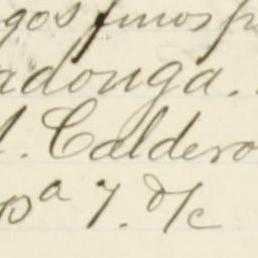 gos finos p
adonga.
l. Caldero
pª 7. d/c